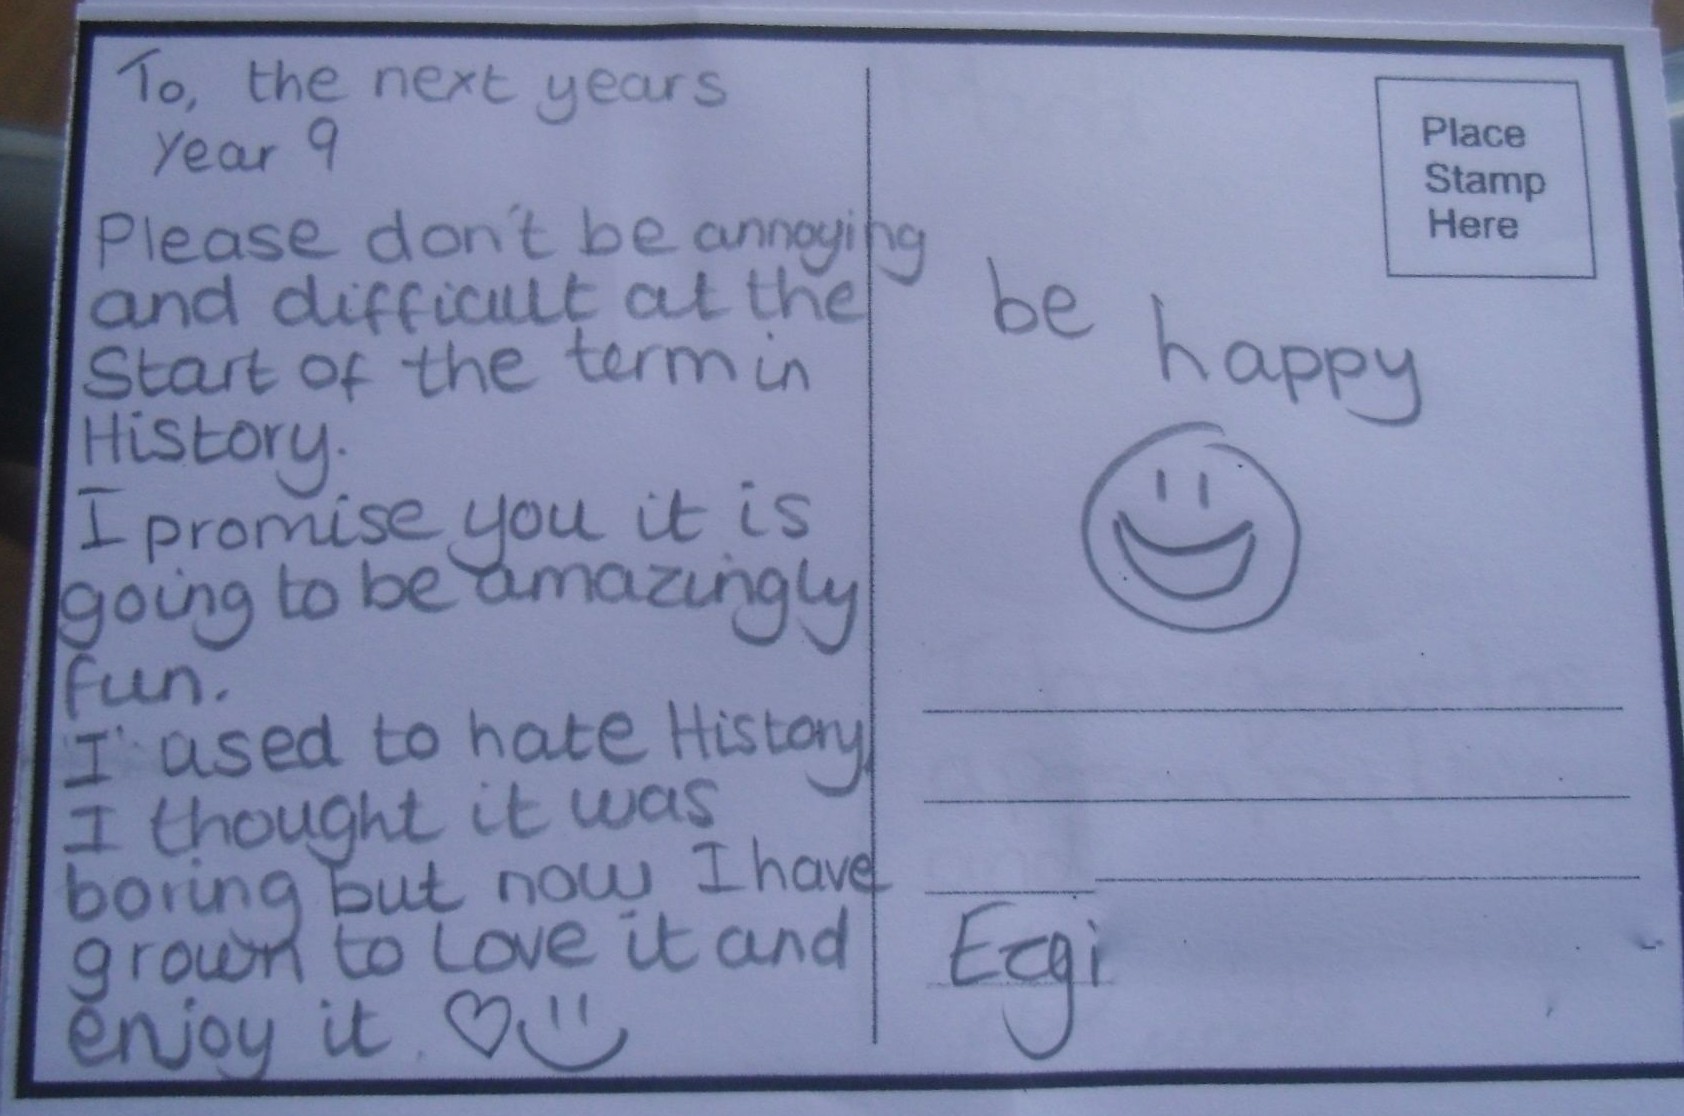 To, the next years
Year 9
Please don't be annoying
and difficult at the
Start of the term in
History.
I promise you it is
going to be amazingly
fun.
I used to hate History,
I thought it was
boring but now I have
grown to love it and
enjoy it.
Place
Stamp
Here
be happy
Ezgi